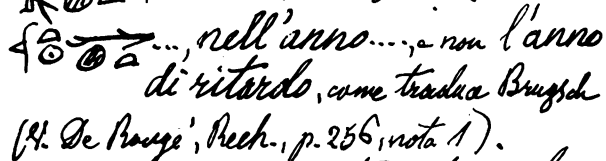 ..., nell'anno...., e non l'anno
di ritardo, come traduce Brugsch
(V. De Rougé, Rech., p. 256, nota 1).